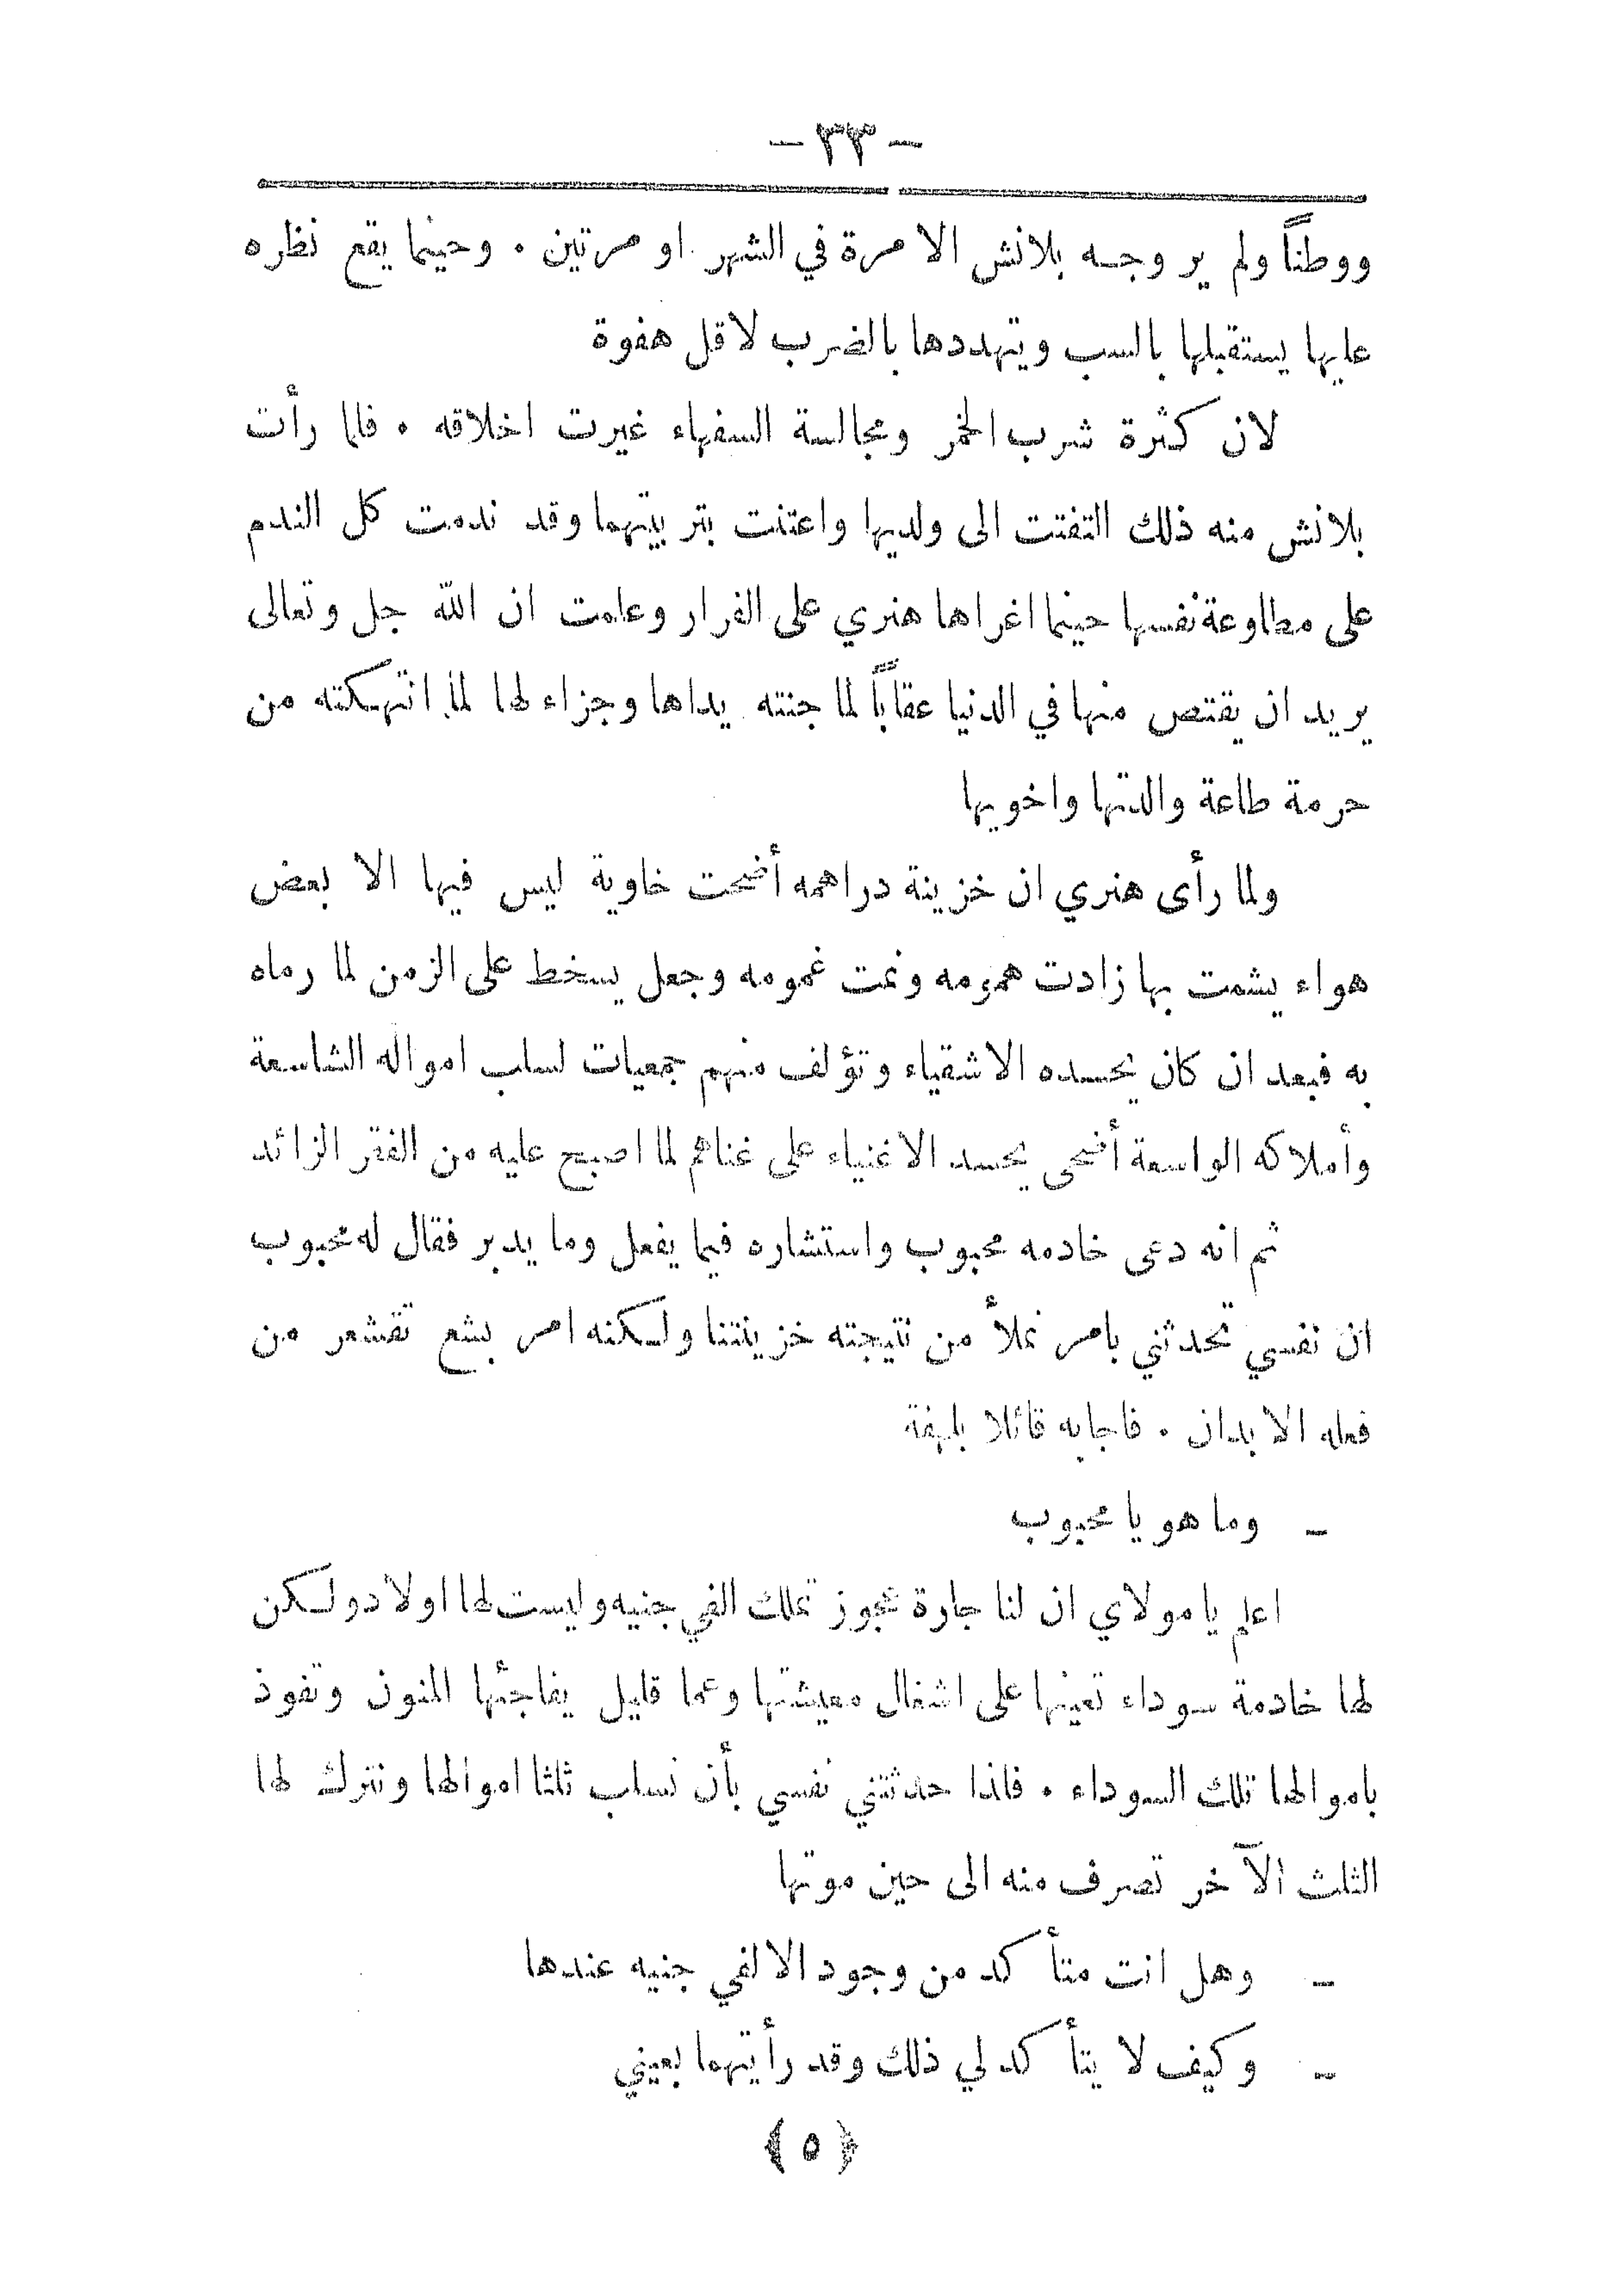 - ٣٣ -
ووطناً ولم ير وجه بلانش الا مرة في الشهر او مرتين . وحينما يقع نظره
عليها يستقبلها بالسب ويتهددها بالضرب لاقل هفوة
لان كثرة شرب الخمر ومجالسة السفهاء غيرت اخلاقه . فلما رأت
بلانش منه ذلك التفتت الى ولديها واعتنت بتربيتهما وقد ندمت كل الندم
على مطاوعة نفسها حينما اغراها هنري على الفرار وعلمت ان الله جل وتعالى
يريد ان يقتص منها في الدنيا عقاباً لما جنته يداها وجزاء لها لما انتهكته من
حرمة طاعة والدتها واخويها
ولما رأى هنري ان خزينة دراهمه أضحت خاوية ليس فيها الا بعض
هواء يشمت بها زادت همومه ونمت غمومه وجعل يسخط على الزمن لما رماه
به فبعد ان كان يحسده الاشقياء وتؤلف منهم جمعيات لسلب امواله الشاسعة
وأملاكه الواسعة أضحى يحسد الاغنياء على غناهم لما اصبح عليه من الفقر الزائد
ثم انه دعى خادمه محبوب واستشاره فيما يفعل وما يدبر فقال له محبوب
ان نفسي تحدثني بامر نملأ من نتيجته خزينتنا ولكنه امر بشع تقشعر من
فعله الابدان . فاجابه قائلا بلهفة
- وما هو يا محبوب
اعلم يا مولاي ان لنا جارة عجوز تملك الفي جنيه وليست لها اولاد ولكن
لها خادمة سوداء تعينها على اشغال معيشتها وعما قليل يفاجئها المنون وتفوذ
باموالها تلك السوداء . فلذا حدثتني نفسي بأن نسلب ثلثا اموالها ونترك لها
الثلث الآخر تصرف منه الى حين موتها
- وهل انت متأكد من وجود الالفي جنيه عندها
- وكيف لا يتأكد لي ذلك وقد رأيتهما بعيني
﴿ ٥ ﴾